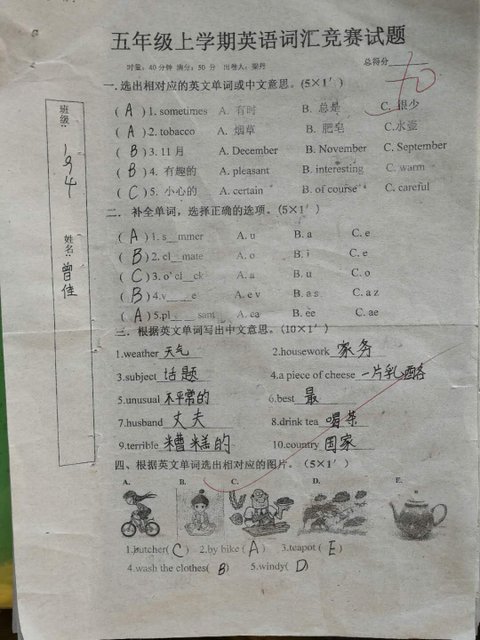 五年级上学期英语词汇竞赛试题
时量：40分钟 满分：50分 出卷人：
总得分
一.选出相对应的英文单词或中文意思。(5×1′)
( A ) 1. sometimes A. 有时 B. 总是 C. 很少
( A ) 2. tobacco A. 烟草 B. 肥皂 C.水壶
( B ) 3. 11月 A. December B. November C. September
( B ) 4. 有趣的 A. pleasant B. interesting C. warm
( C ) 5. 小心的 A. certain B. of course C. careful
二．补全单词，选择正确的选项。(5×1′)
( A ) 1. s__mmer A. u B. a C. e
( B ) 2. cl__mate A. o B. i C. e
( C ) 3. o'cl__ck A. a B. u C. o
( B ) 4.v____e A. e v B. a s C. a z
( A ) 5.pl____sant A. ea B. ee C. ae
三．根据英文单词写出中文意思。(10×1′)
1.weather 天气 2.housework 家务
3.subject 话题 4.a piece of cheese 一片乳酪
5.unusual 不平常的 6.best 最
7.husband 丈夫 8.drink tea 喝茶
9.terrible 糟糕的 10.country 国家
四、根据英文单词选出相对应的图片。(5×1′)
A. B. C. D. E.
1.butcher( C ) 2.by bike ( A ) 3.teapot ( E )
4.wash the clothes( B ) 5.windy( D )
班级：194
姓名：曾佳